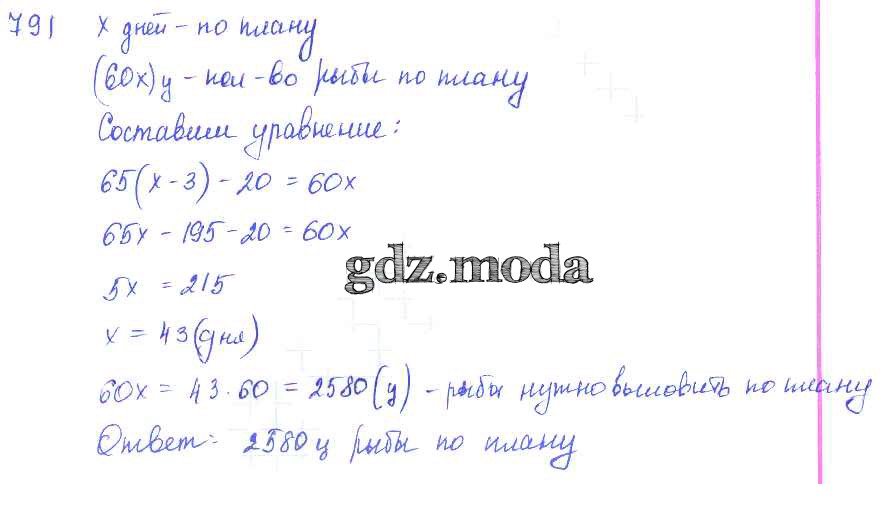 791 х дней - по плану
(60х)ц - кол-во рыбы по плану
Составим уравнение:
65(х-3) - 20 = 60х
65х - 195 - 20 = 60х
gdz.moda
5х = 215
х = 43 (дня)
60х = 43·60 = 2580(ц) - рыбы нужно выловить по плану
Ответ: 2580 ц рыбы по плану